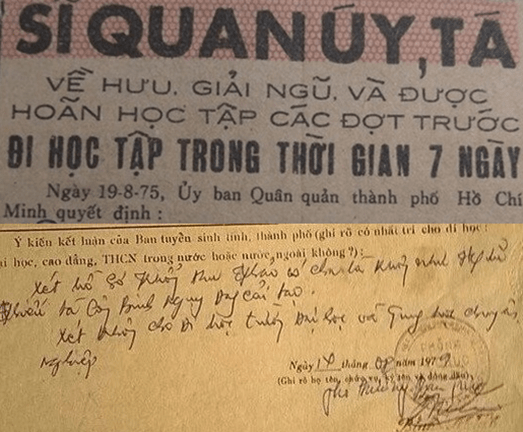 SĨ QUAN ÚY, TÁ
VỀ HƯU, GIẢI NGŨ, VÀ ĐƯỢC
HOÃN HỌC TẬP CÁC ĐỢT TRƯỚC
ĐI HỌC TẬP TRONG THỜI GIAN 7 NGÀY
Ngày 19-8-75, Ủy ban Quân quản thành phố Hồ Chí
Minh quyết định :
Ý kiến kết luận của Ban tuyển sinh tỉnh, thành phố (ghi rõ có nhất trí cho đi học :
ại học, cao đẳng, THCN trong nước hoặc nước ngoài không?) :
Xét hồ sơ Khổng Thu Thảo có cha là Khổng Như
Thiếu tá Công Binh Ngụy Đang cải tạo.
Xét không cho Đi học trường Đại học và Trung học chuyên
Nghiệp
Ngày 14 tháng năm 1979
(Ghi rõ họ tên, chức vụ, ký tên và đóng dấu)